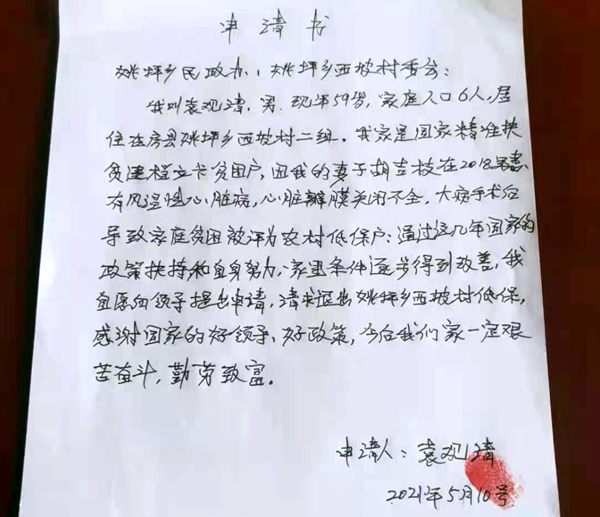 申请书
姚坪乡民政办、姚坪乡西坡村委会：
我叫袁观清，男，现年59岁，家庭人口6人，居
住在房县姚坪乡西坡村二组。我家是国家精准扶
贫建档立卡贫困户，因我的妻子胡吉枝在2018年患
有风湿性心脏病，心脏瓣膜关闭不全，大病手术后
导致家庭贫困被评为农村低保户；通过这几年国家的
政策扶持和自身努力，家里条件逐步得到改善，我
自愿向领导提出申请，请求退出姚坪乡西坡村低保，
感谢国家的好领导、好政策，今后我们家一定艰
苦奋斗，勤劳致富。
申请人：袁观清
2021年5月10号